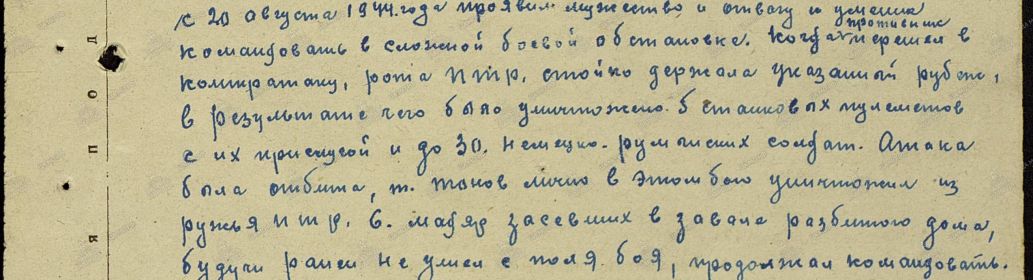 с 20 августа 1944 года проявил мужество и отвагу и умение
командовать в сложной боевой обстановке. Когда противник перешел в
контратаку, рота птр. стойко держала указанный рубеж,
в результате чего было уничтожено 5 станковых пулеметов
с их прислугой и до 30. немецко-румынских солдат. Атака
была отбита, т. Танов лично в этом бою уничтожил из
ружья птр. 6. мадяр засевших в завале разбитого дома,
будучи ранен не ушел с поля боя, продолжал командовать.
д
о
п
я